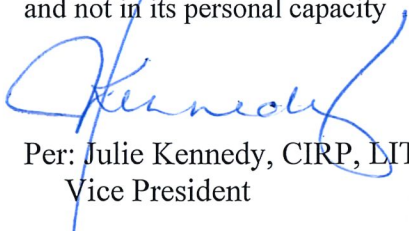 and not in its personal capacity
JKennedy
Per: Julie Kennedy, CIRP, LIT
Vice President